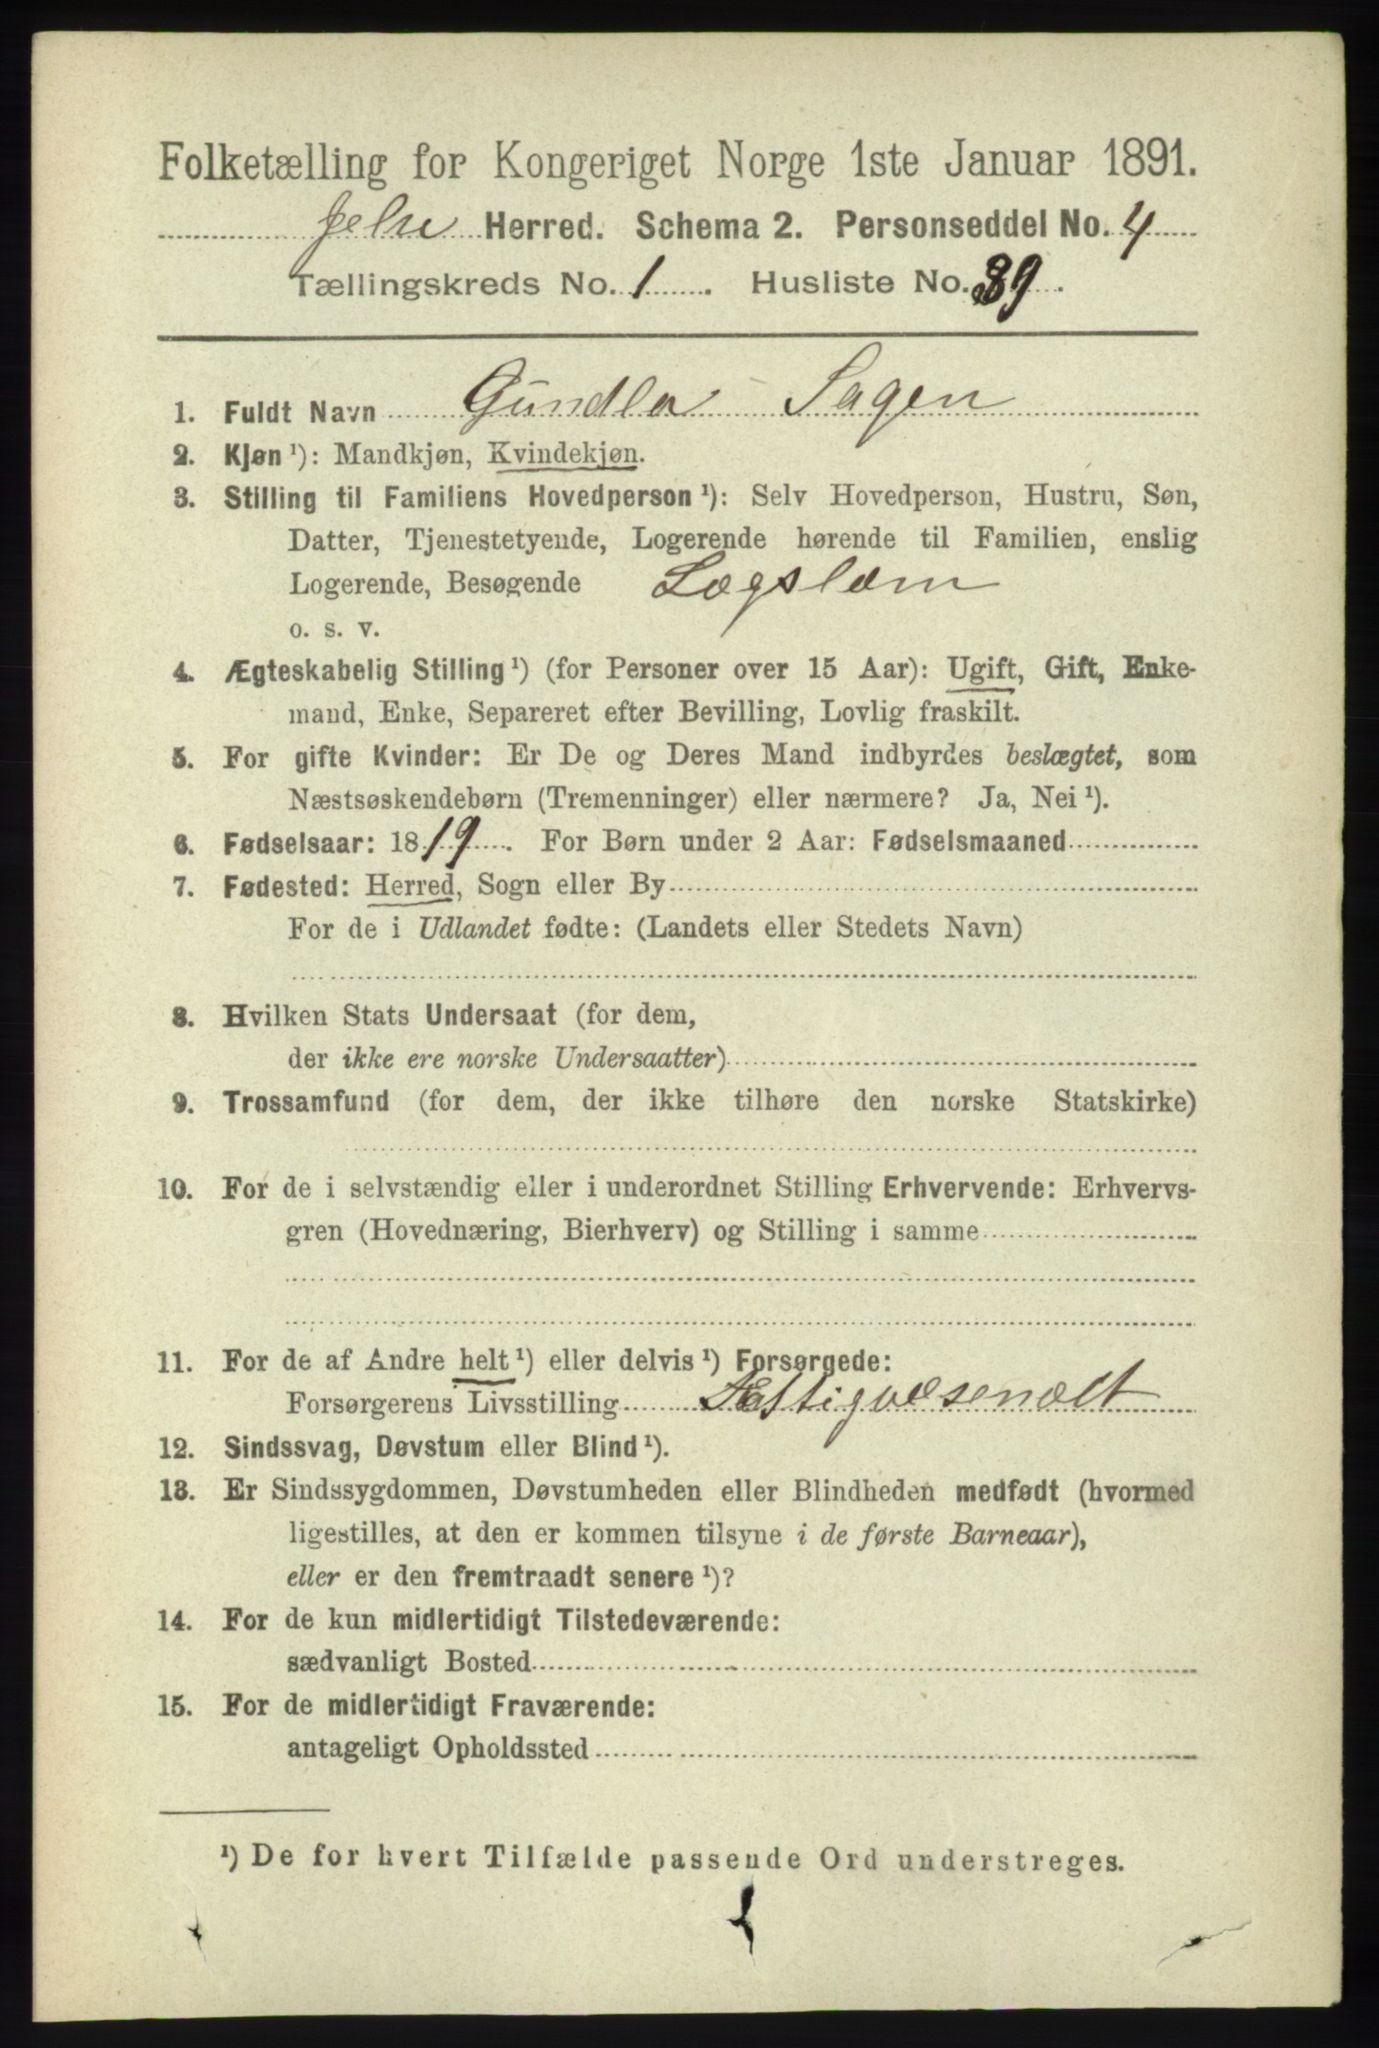 Folketælling for Kongeriget Norge 1ste Januar 1891.
Jelse Herred. Schema 2. Personseddel No. 4
Tællingskreds No. 1. Husliste No. 39.
1. Fuldt Navn Gundla Sagen
2. Kjøn ¹): Mandkjøn, Kvindekjøn.
3. Stilling til Familiens Hovedperson ¹): Selv Hovedperson, Hustru, Søn,
Datter, Tjenestetyende, Logerende hørende til Familien, enslig
Logerende, Besøgende Lægslem
o. s. v.
4. Ægteskabelig Stilling ¹) (for Personer over 15 Aar): Ugift, Gift, Enke-
mand, Enke, Separeret efter Bevilling, Lovlig fraskilt.
5. For gifte Kvinder: Er De og Deres Mand indbyrdes beslægtet, som
Næstsøskendebørn (Tremenninger) eller nærmere? Ja, Nei ¹).
6. Fødselsaar: 1819. For Børn under 2 Aar: Fødselsmaaned
7. Fødested: Herred, Sogn eller By
For de i Udlandet fødte: (Landets eller Stedets Navn)
8. Hvilken Stats Undersaat (for dem,
der ikke ere norske Undersaatter)
9. Trossamfund (for dem, der ikke tilhøre den norske Statskirke)
10. For de i selvstændig eller i underordnet Stilling Erhvervende: Erhvervs-
gren (Hovednæring, Bierhverv) og Stilling i samme
11. For de af Andre helt ¹) eller delvis ¹) Forsørgede:
Forsørgerens Livsstilling
12. Sindssvag, Døvstum eller Blind ¹).
13. Er Sindssygdommen, Døvstumheden eller Blindheden medfødt (hvormed
ligestilles, at den er kommen tilsyne i de første Barneaar),
eller er den fremtraadt senere ¹)?
14. For de kun midlertidigt Tilstedeværende:
sædvanligt Bosted
15. For de midlertidigt Fraværende:
antageligt Opholdssted
¹) De for hvert Tilfælde passende Ord understreges.